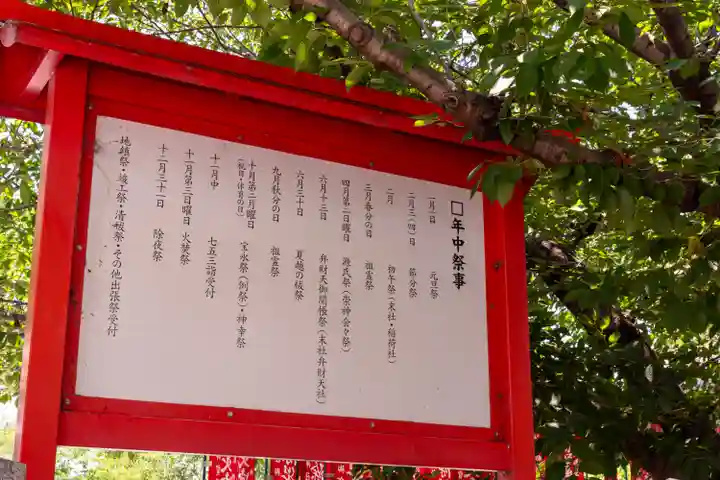 □年中祭事
一月一日 元旦祭
二月三(四)日 節分祭
二月 初午祭(末社・稲荷社)
三月春分の日 祖霊祭
四月第二日曜日 源氏祭(崇神会々祭)
六月十三日 弁財天御開帳祭(末社弁財天社)
六月三十日 夏越の祓祭
九月秋分の日 祖霊祭
十月第二月曜日
(祝日・体育の日) 宝永祭(例祭)・神幸祭
十一月中 七五三詣受付
十一月第三日曜日 火焚祭
十二月三十一日 除夜祭
地鎮祭・竣工祭・清祓祭・その他出張祭受付